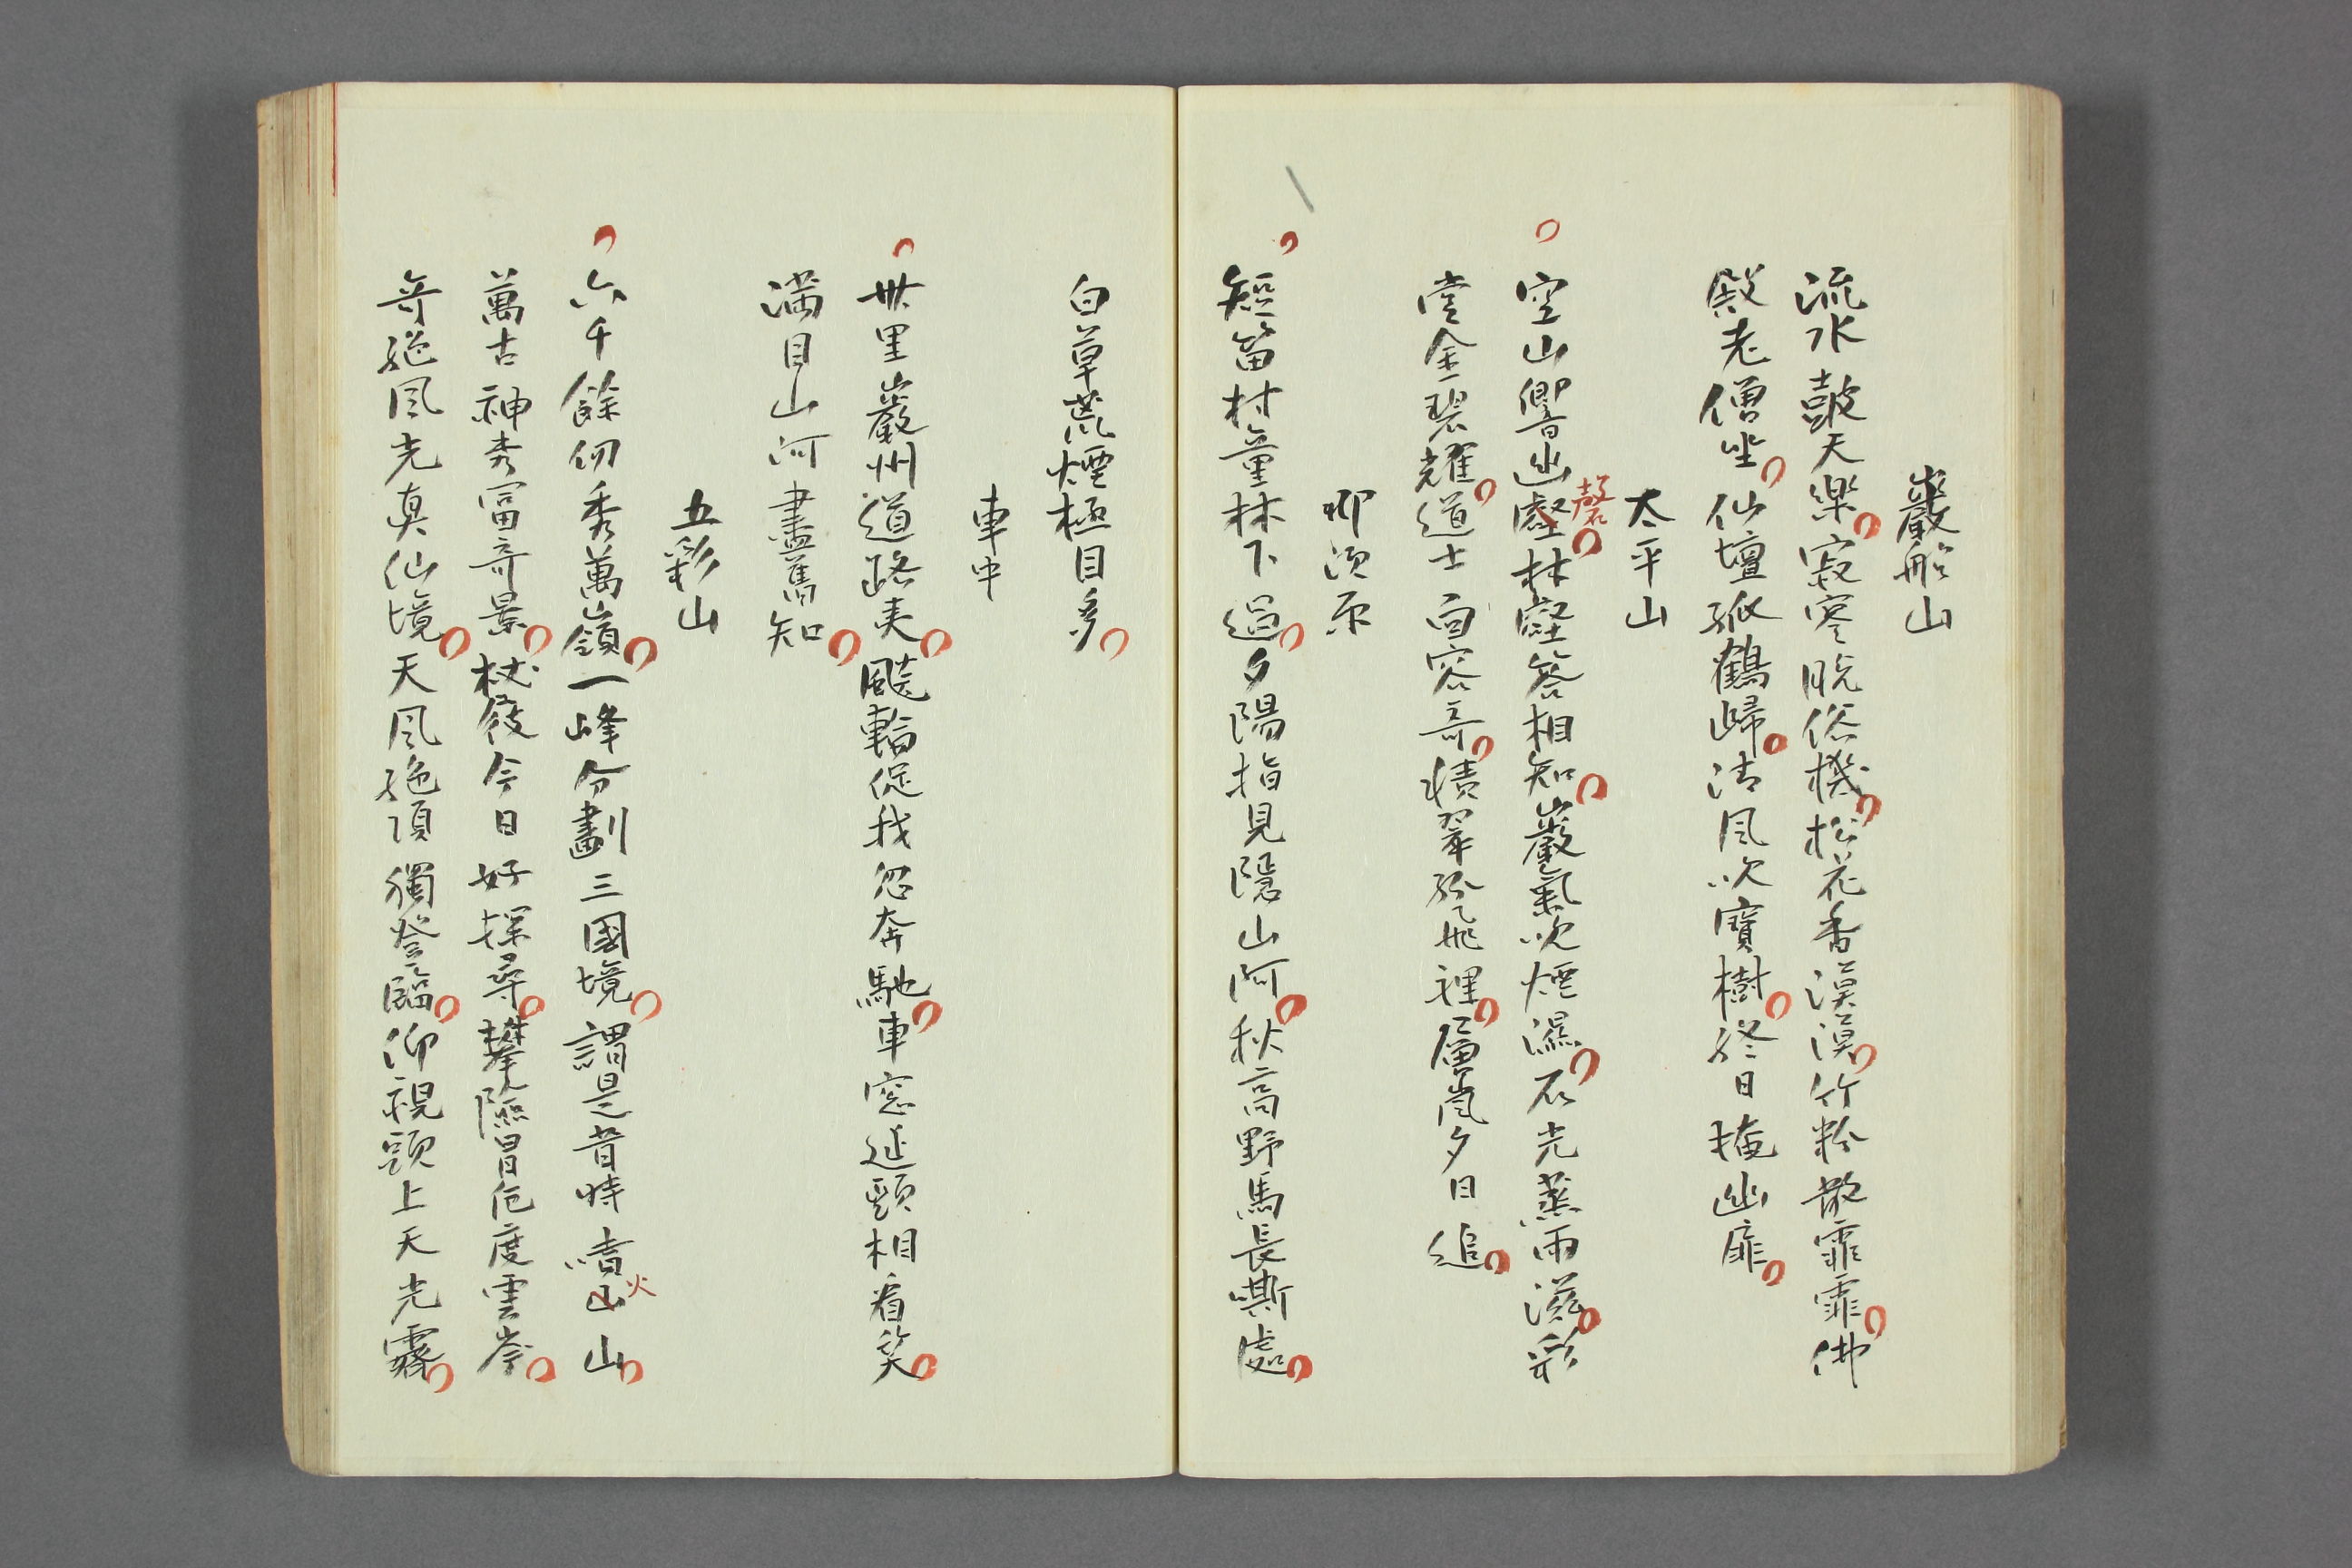 巖船山
流水鼓天樂寂寥脱俗機松花香漠漠竹粉散霏霏佛
殿老僧坐仙壇孤鶴歸清風吹寶樹終日掩幽扉
太平山
空山響幽壑林壑答相知巖氣吹煙濕石光蒸雨滋彩
磬
堂金碧耀道士面容奇積翠孤飛裡層嵐夕日追
那須原
短笛村童林下過夕陽指見隱山阿秋高野馬長嘶處
白草荒煙極目多
車中
卅里巖州道路夷颷輪促我忽奔馳車窓延頸相看笑
滿目山河盡舊知
五彩山
六千餘仞秀萬嶺一峰分劃三國境謂是昔時噴山山
火
萬古神秀富奇景杖筱今日好探尋攀險冒危度雲岑
奇絶風光真仙境天風絶頂獨登臨仰視頭上天光霽